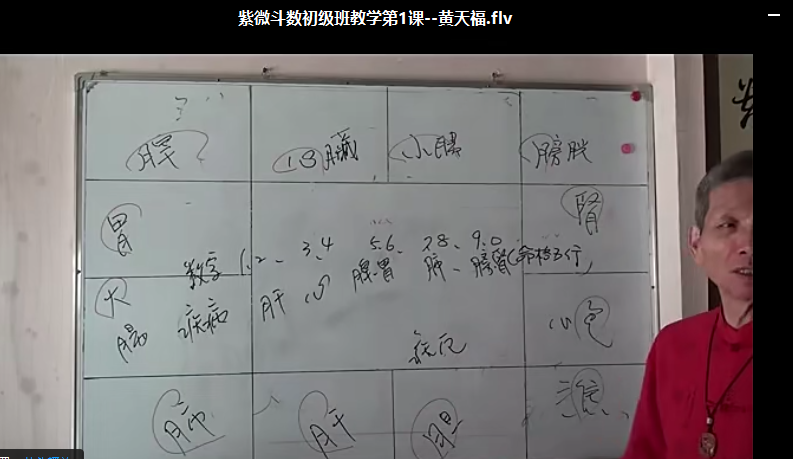 紫微斗数初级班教学第1课--黄天福.flv
脾 心臟 小腸 膀胱
胃 腎
数字 1.2、 3.4 5.6、 7.8、 9.0
疾病 肝 心 脾胃 肺、 膀腎(命格五行)
大腸 心包
三焦
肺 肝 胆